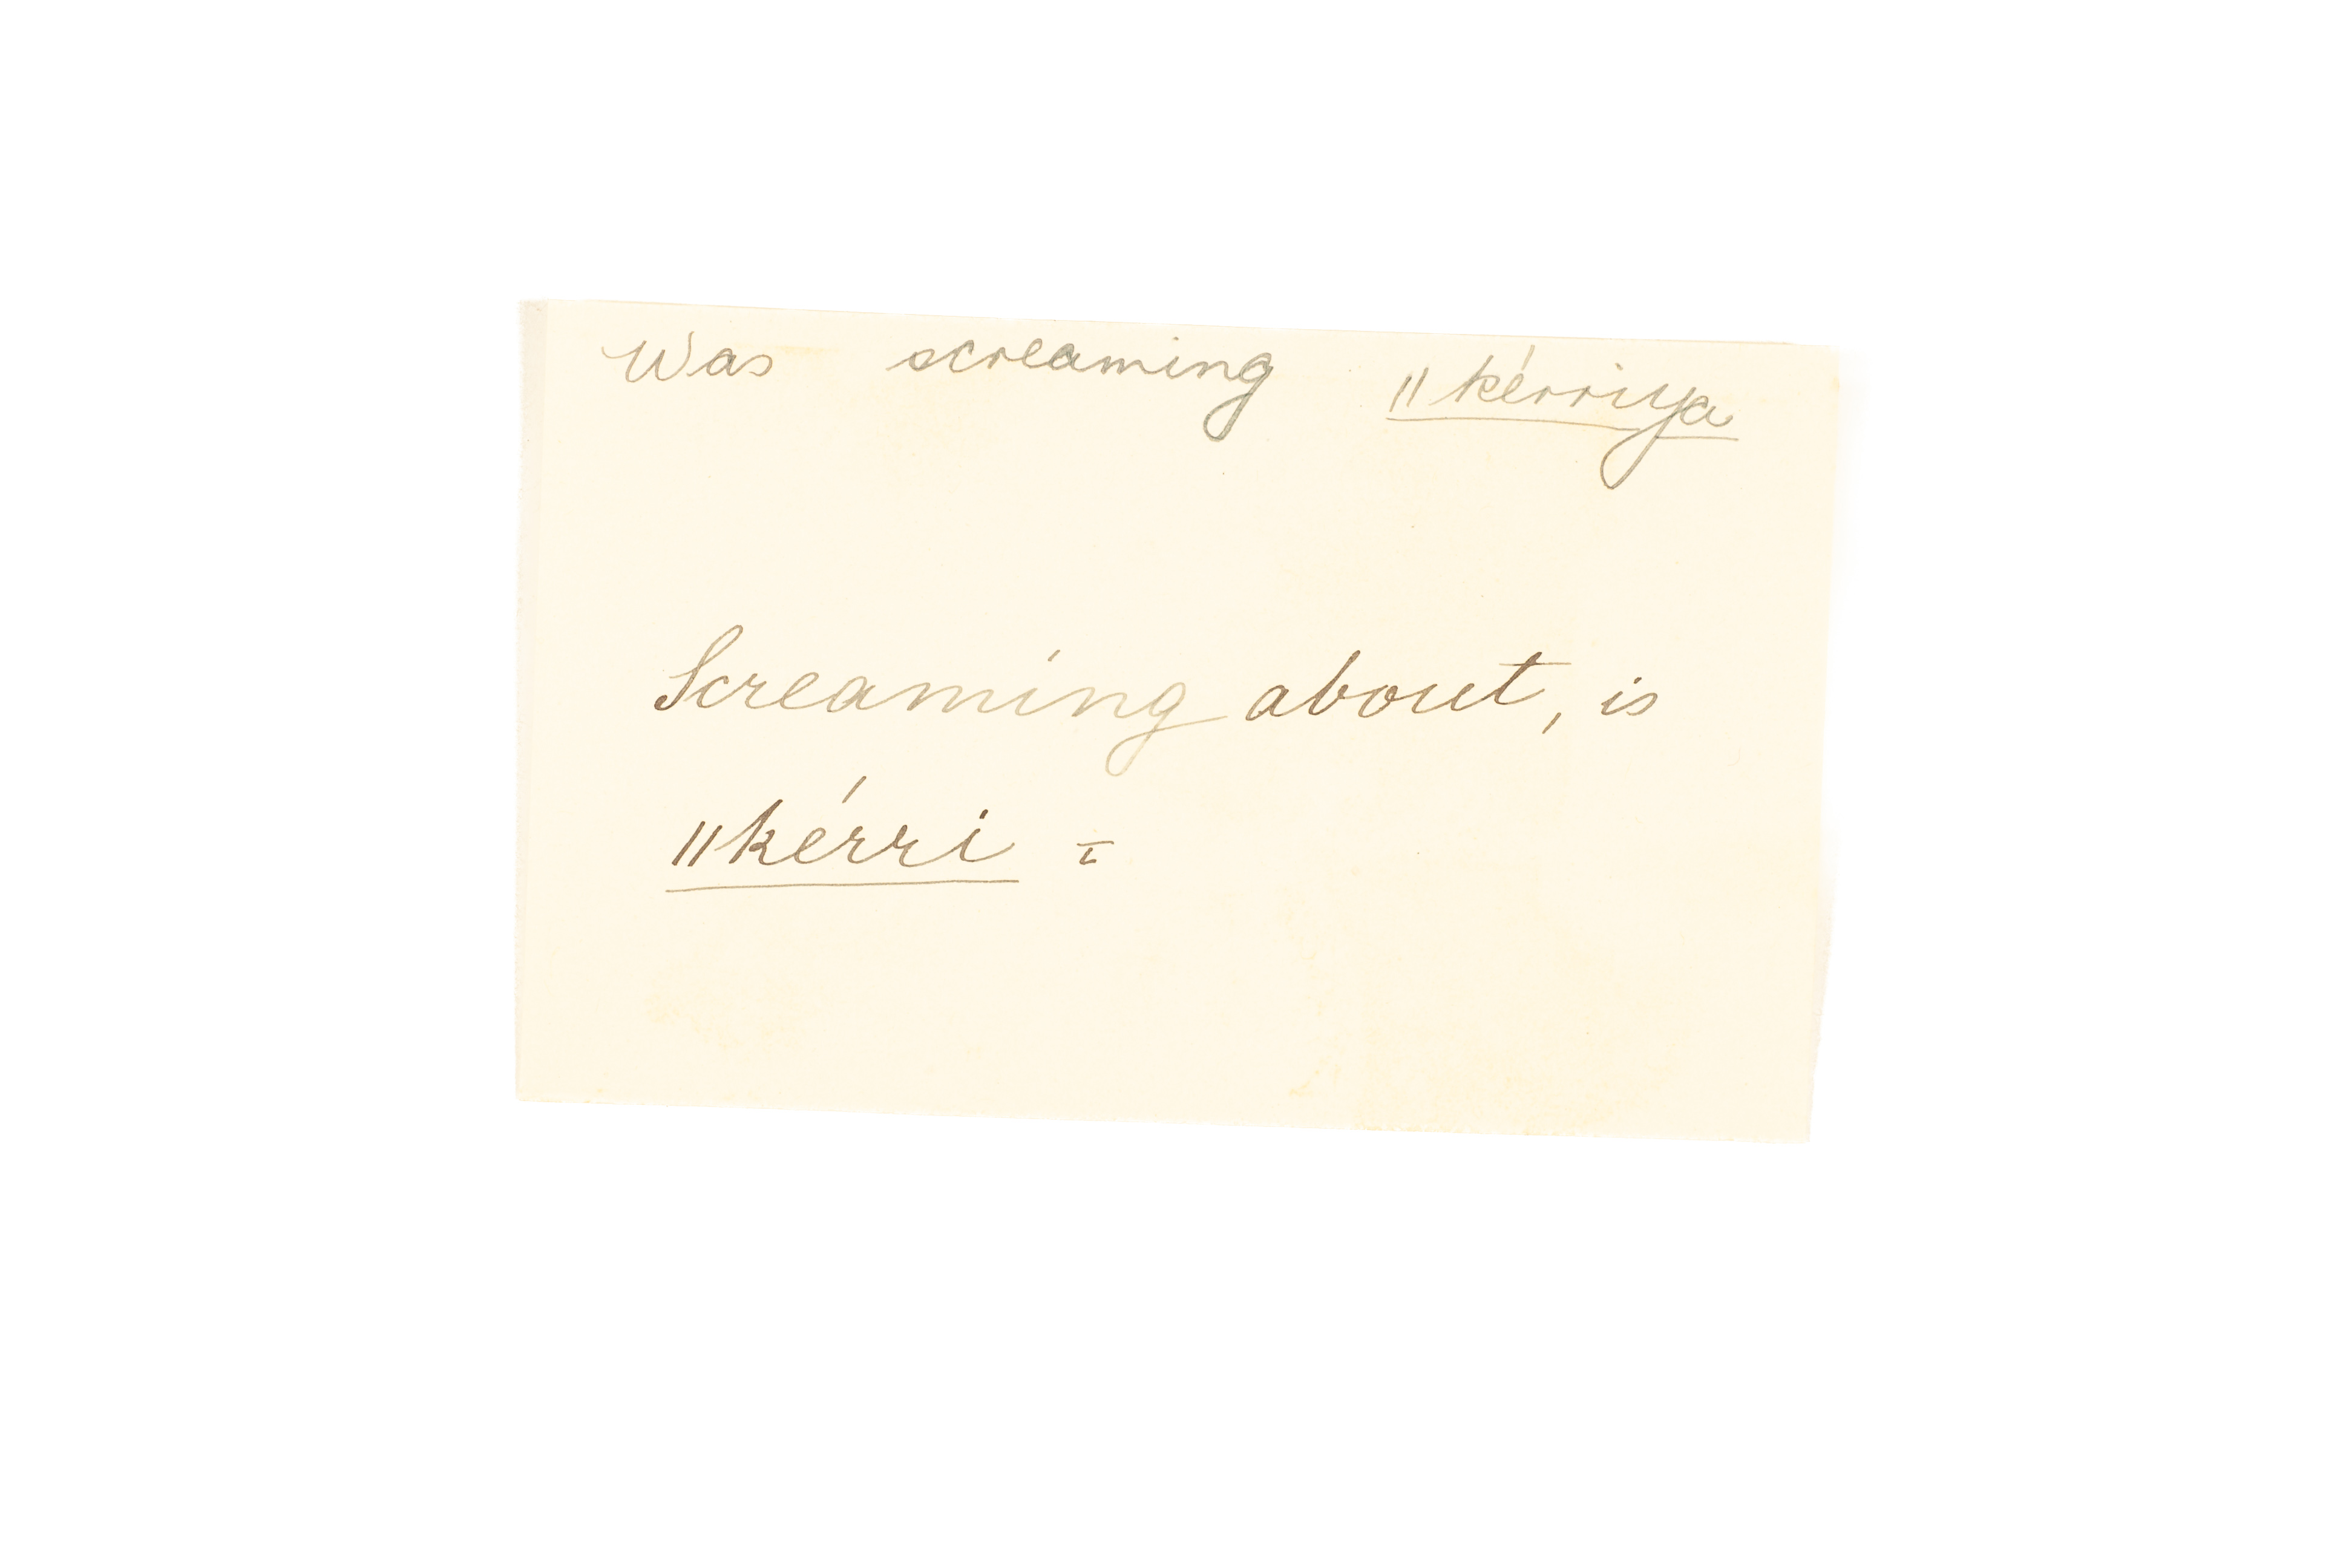 Was screaming ǁkérriya
Screaming about, is
ǁkérri =